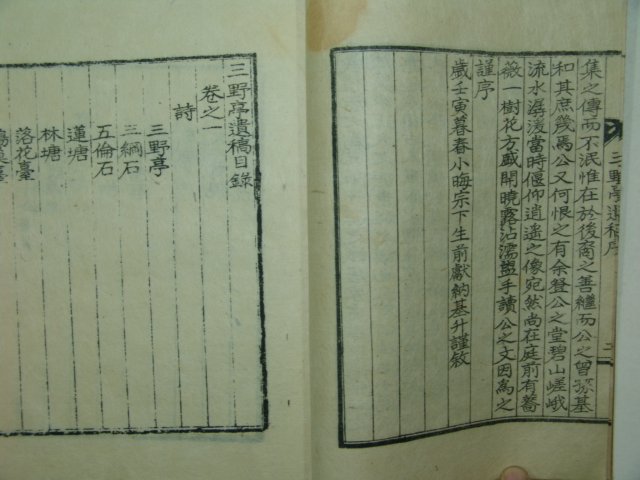 三野亭遺稿序
二
集之傳而不泯惟在於後裔之善繼而公之曾孫基
和其庶幾焉公又何恨之有余登公之堂碧山嵯峨
流水潺湲當時偃仰逍遙之像宛然尚在庭前有薔
薇一樹花方盛開曉露沾濡盥手讀公之文因爲之
謹序
歲壬寅暮春小晦宗下生前獻納基升謹敘
三野亭遺稿目錄
卷之一
詩
三野亭
三綱石
五倫石
蓮塘
林塘
落花臺